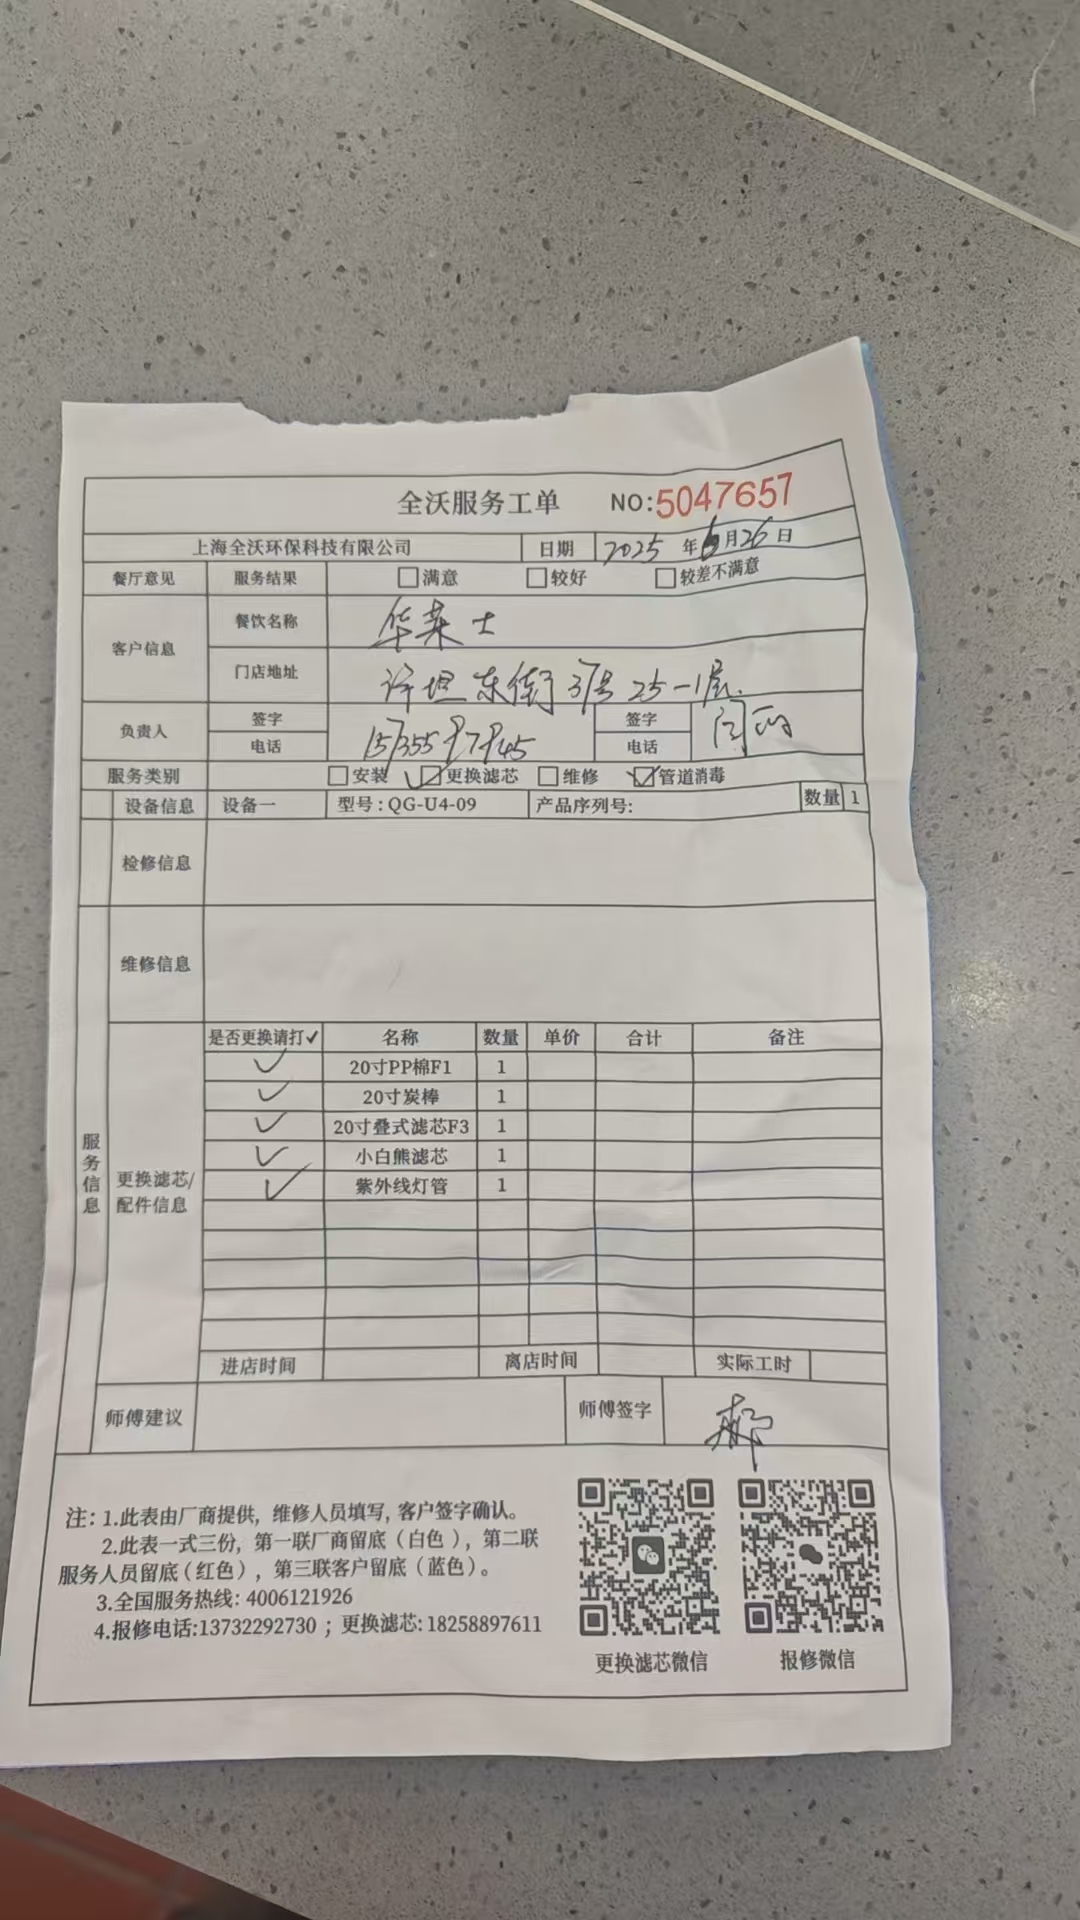 全沃服务工单 NO:5047657
上海全沃环保科技有限公司 日期 2025 年 6 月 26 日
餐厅意见 服务结果 满意 较好 较差不满意
客户信息 餐饮名称 华莱士
门店地址 许坦东街3号25-1层
负责人 签字 签字
电话 电话
服务类别 安装 更换滤芯 维修 管道消毒
设备信息 设备一 型号:QG-U4-09 产品序列号: 数量 1
检修信息
维修信息
服务信息
更换滤芯/配件信息
是否更换请打✓ 名称 数量 单价 合计 备注
✓ 20寸PP棉F1 1
✓ 20寸炭棒 1
✓ 20寸叠式滤芯F3 1
✓ 小白熊滤芯 1
✓ 紫外线灯管 1
进店时间 离店时间 实际工时
师傅建议 师傅签字 郝
注:1.此表由厂商提供,维修人员填写,客户签字确认。
2.此表一式三份,第一联厂商留底(白色),第二联
服务人员留底(红色),第三联客户留底(蓝色)。
3.全国服务热线:4006121926
4.报修电话:13732292730;更换滤芯:18258897611
更换滤芯微信 报修微信